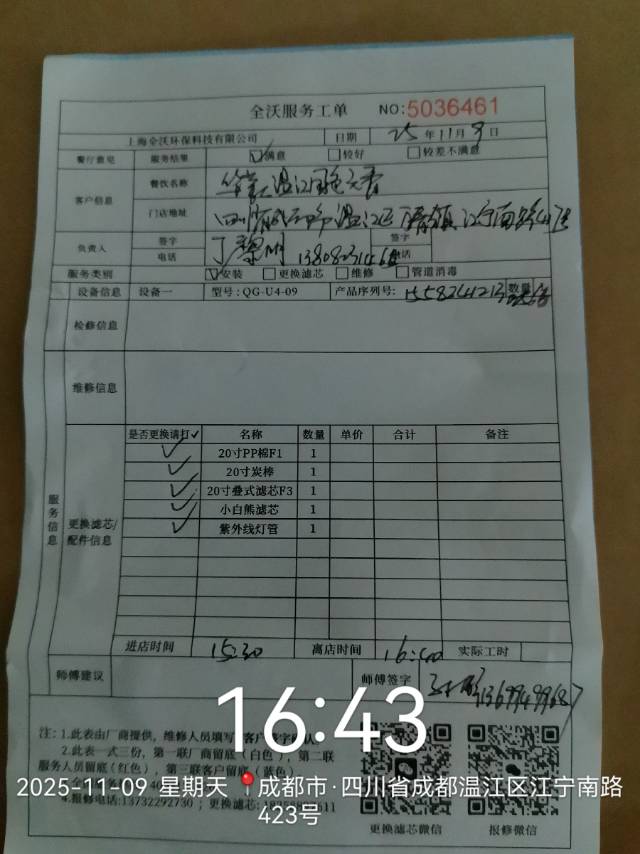 全沃服务工单 NO:5036461
上海全沃环保科技有限公司 日期 25年11月9日
餐厅意见 服务结果 ☑满意 □较好 □较差不满意
客户信息 餐饮名称 温江
门店地址 四川 温江区 镇江宁南路
负责人 签字 丁 签字
电话 电话
服务类别 ☑安装 □更换滤芯 □维修 □管道消毒
设备信息 设备一 型号:QG-U4-09 产品序列号: 数量
检修信息
维修信息
服务信息
更换滤芯/配件信息
是否更换请打✓ 名称 数量 单价 合计 备注
✓ 20寸PP棉F1 1
✓ 20寸炭棒 1
✓ 20寸叠式滤芯F3 1
✓ 小白熊滤芯 1
✓ 紫外线灯管 1
进店时间 15:30 离店时间 16:40 实际工时
师傅建议 师傅签字
16:43
注:1.此表由厂商提供,维修人员填写
2.此表一式三份,第一联厂商留底(白色),第二联
服务人员留底(红色),第三联客户留底(蓝色)
2025-11-09 星期天 成都市·四川省成都温江区江宁南路
423号
4.报修电话:13732292730;更换滤芯:
更换滤芯微信 报修微信